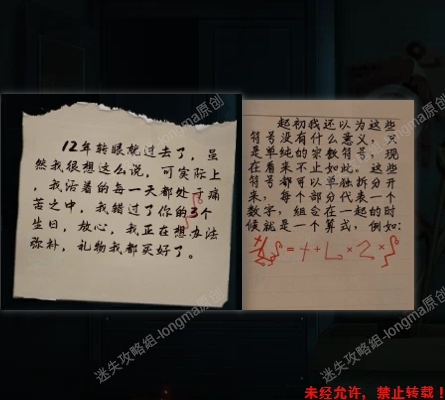 12年转眼就过去了，虽
然我很想这么说，可实际上
，我活着的每一天都处于痛
苦之中，我错过了你的3个
生日，放心，我正在想办法
弥补，礼物我都买好了。
起初我还以为这些
符号没有什么意义，只
是单纯的宗教符号，现
在看来不止如此。这些
符号都可以单独拆分开
来，每个部分代表一个
数字，组合在一起的时
候就是一个算式，例如：
迷失攻略组-longma原创
迷失攻略组-longma原创
迷失攻略组-longma原创
迷失攻略组-longma原创
未经允许，禁止转载！